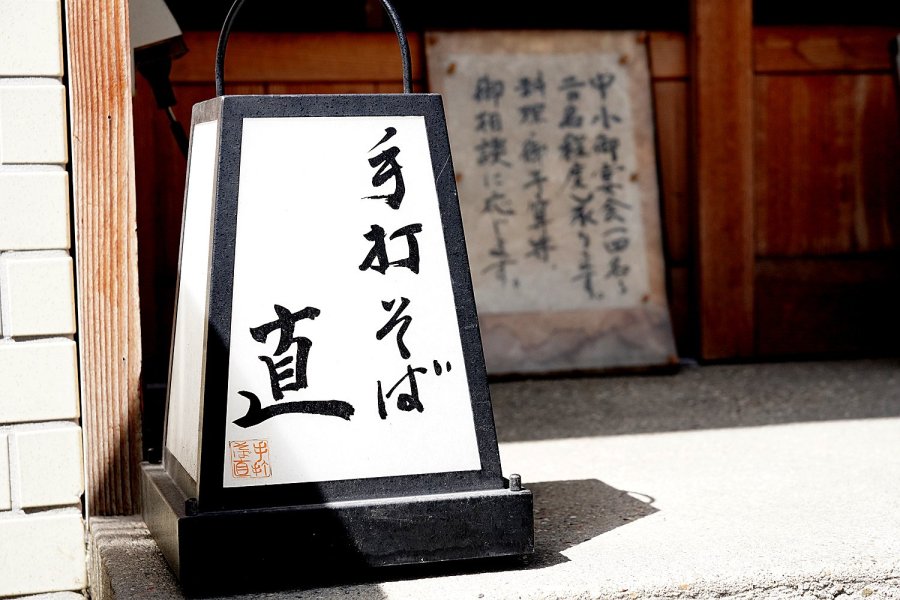 手打そば
直
中小御宴会一四名〜
二名程度承ります。
料理・御予算共
御相談に応じます。
手打
直